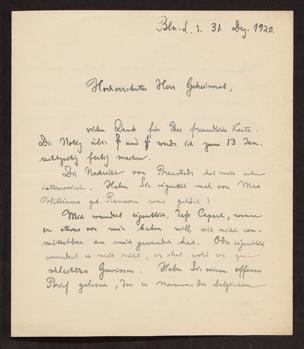 Bln-L. d. 31. Dez. 1920.
Hochverehrter Herr Geheimrat,
vielen Dank für Ihre freundliche Karte.
Die Notiz über und werde ich zum 13 Jan.
rechtzeitig fertig machen.
Die Nachricht von hat mich sehr
interessiert. Haben Sie eigentlich mal von Mrs
Williams geb. was gehört?
Mich wundert eigentlich, daß Capart, wenn
er etwas von mir haben will sich nicht un-
mittelbar an mich gewandt hat. Oder eigentlich
wundert es mich nicht, er hat wohl ein
schlechtes Gewissen. Haben Sie seinen offenen
Brief gelesen, den er namens der belgischen